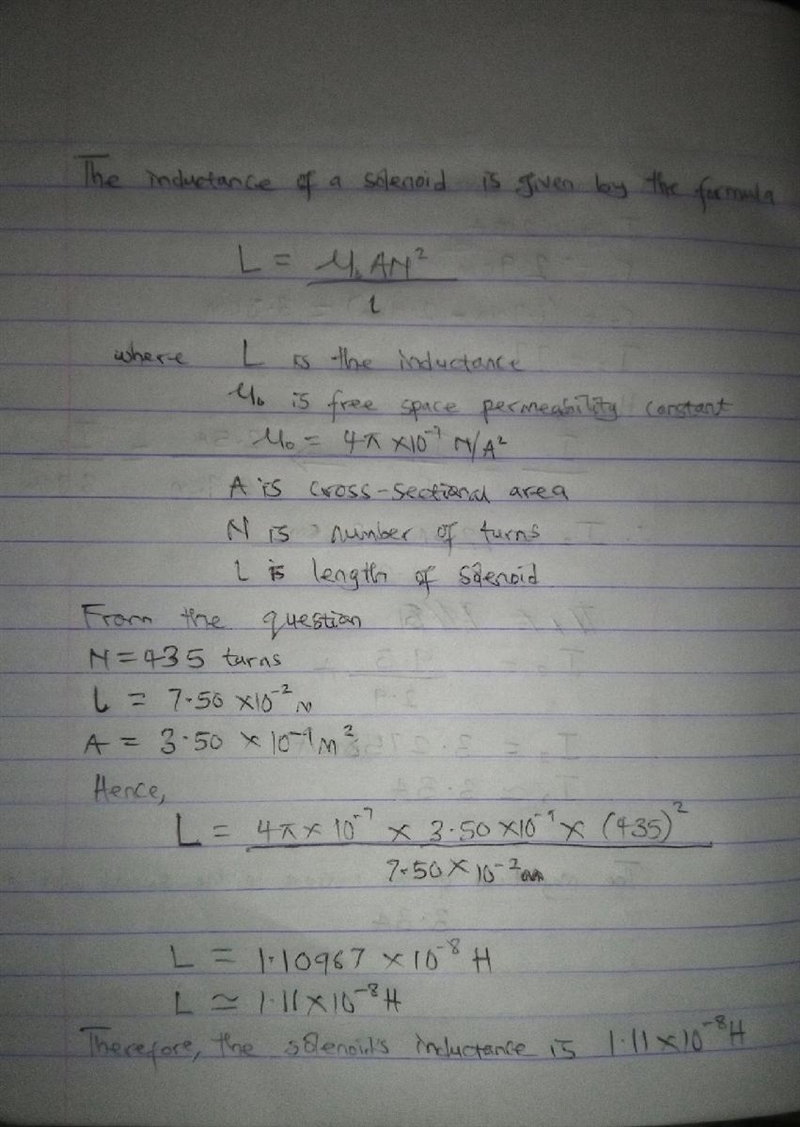 The inductance of a solenoid is given by the formula
L = μ₀AN²
l
where L is the inductance
μ₀ is free space permeability constant
μ₀ = 4π × 10⁻⁷ N/A²
A is cross-sectional area
N is number of turns
l is length of solenoid
From the question
N = 435 turns
l = 7.50 × 10⁻² m
A = 3.50 × 10⁻⁹ m²
Hence,
L = 4π × 10⁻⁷ × 3.50 × 10⁻⁹ × (435)²
7.50 × 10⁻²
L = 1.10967 × 10⁻⁸ H
L ≃ 1.11 × 10⁻⁸ H
Therefore, the solenoid's inductance is 1.11 × 10⁻⁸ H